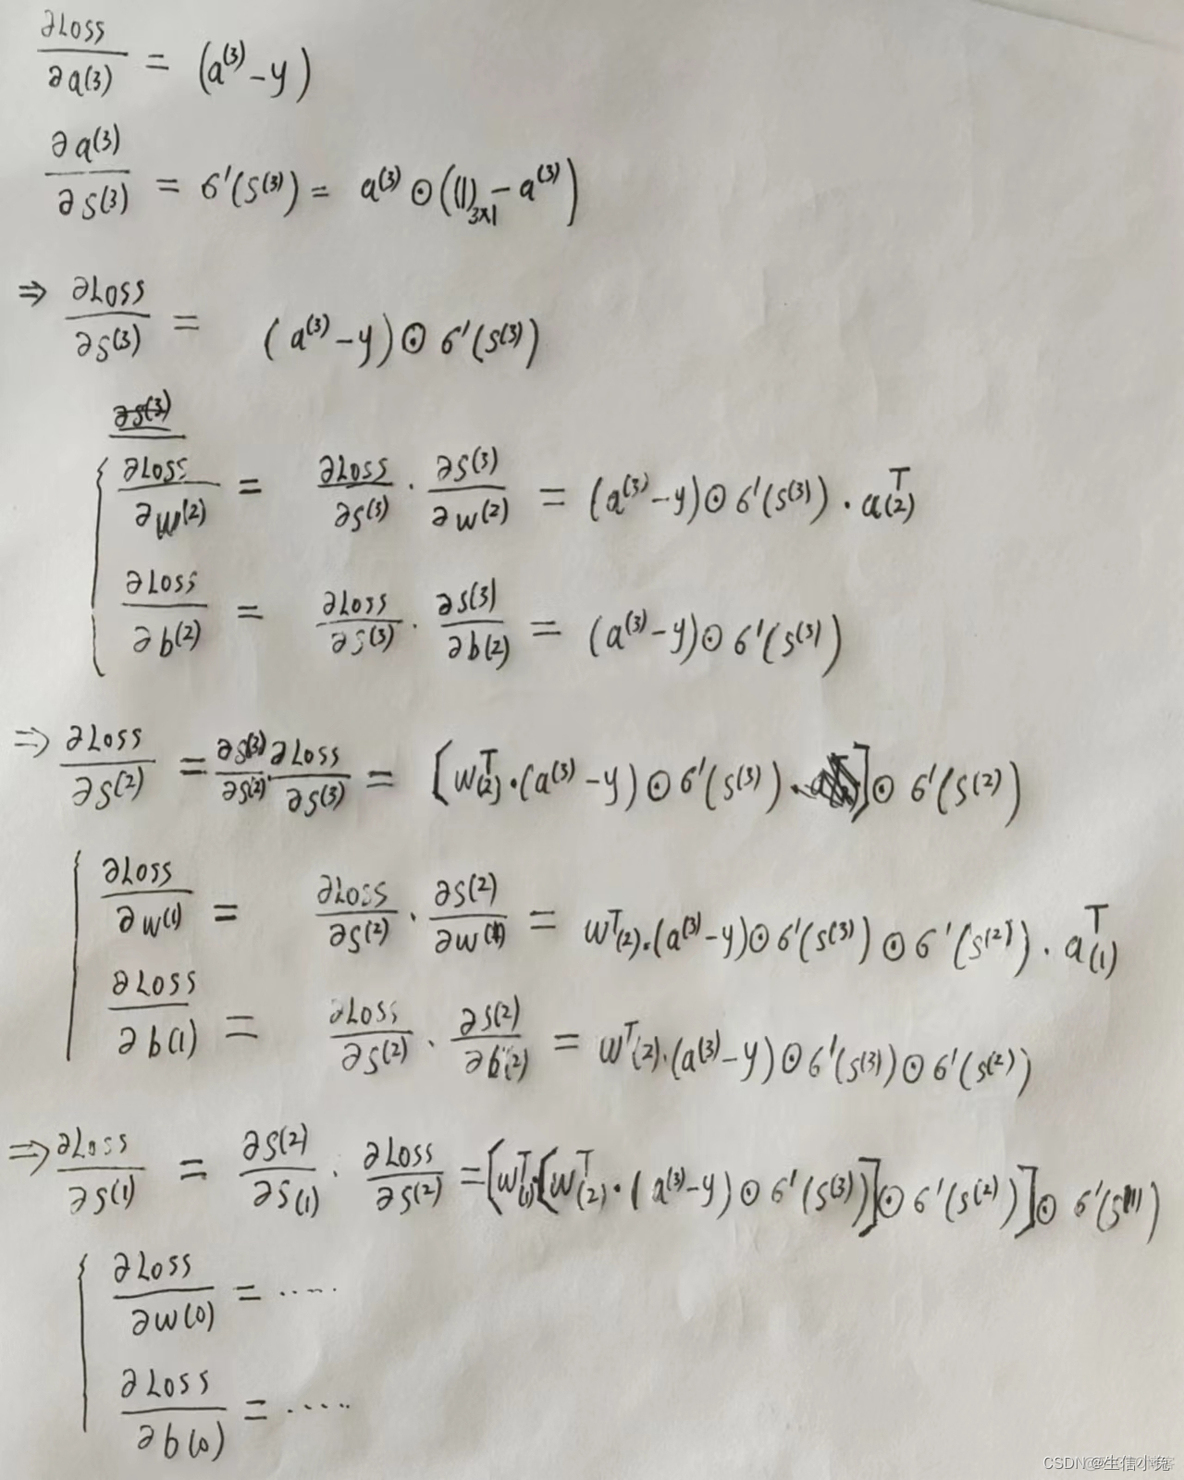 ∂Loss/∂a(3) = (a^(3) - y)
∂a(3)/∂s(3) = σ'(s^(3)) = a^(3) ⊙ ((1)_3x1 - a^(3))
⇒ ∂Loss/∂s(3) = (a^(3) - y) ⊙ σ'(s^(3))
∂s(3)
∂Loss/∂w(2) = ∂Loss/∂s(3) · ∂s(3)/∂w(2) = (a^(3) - y) ⊙ σ'(s^(3)) · a^T_(2)
∂Loss/∂b(2) = ∂Loss/∂s(3) · ∂s(3)/∂b(2) = (a^(3) - y) ⊙ σ'(s^(3))
⇒ ∂Loss/∂s(2) = ∂s(3)/∂s(2) · ∂Loss/∂s(3) = [w^T_(2) · (a^(3) - y) ⊙ σ'(s^(3)) ·] ⊙ σ'(s^(2))
∂Loss/∂w(1) = ∂Loss/∂s(2) · ∂s(2)/∂w(1) = w^T_(2) · (a^(3) - y) ⊙ σ'(s^(3)) ⊙ σ'(s^(2)) · a^T_(1)
∂Loss/∂b(1) = ∂Loss/∂s(2) · ∂s(2)/∂b(2) = w^T_(2) · (a^(3) - y) ⊙ σ'(s^(3)) ⊙ σ'(s^(2))
⇒ ∂Loss/∂s(1) = ∂s(2)/∂s(1) · ∂Loss/∂s(2) = [w^T_(1) · [w^T_(2) · (a^(3) - y) ⊙ σ'(s^(3))] ⊙ σ'(s^(2))] ⊙ σ'(s^(1))
∂Loss/∂w(0) = ·····
∂Loss/∂b(0) = ·····
CSDN @生信小兔